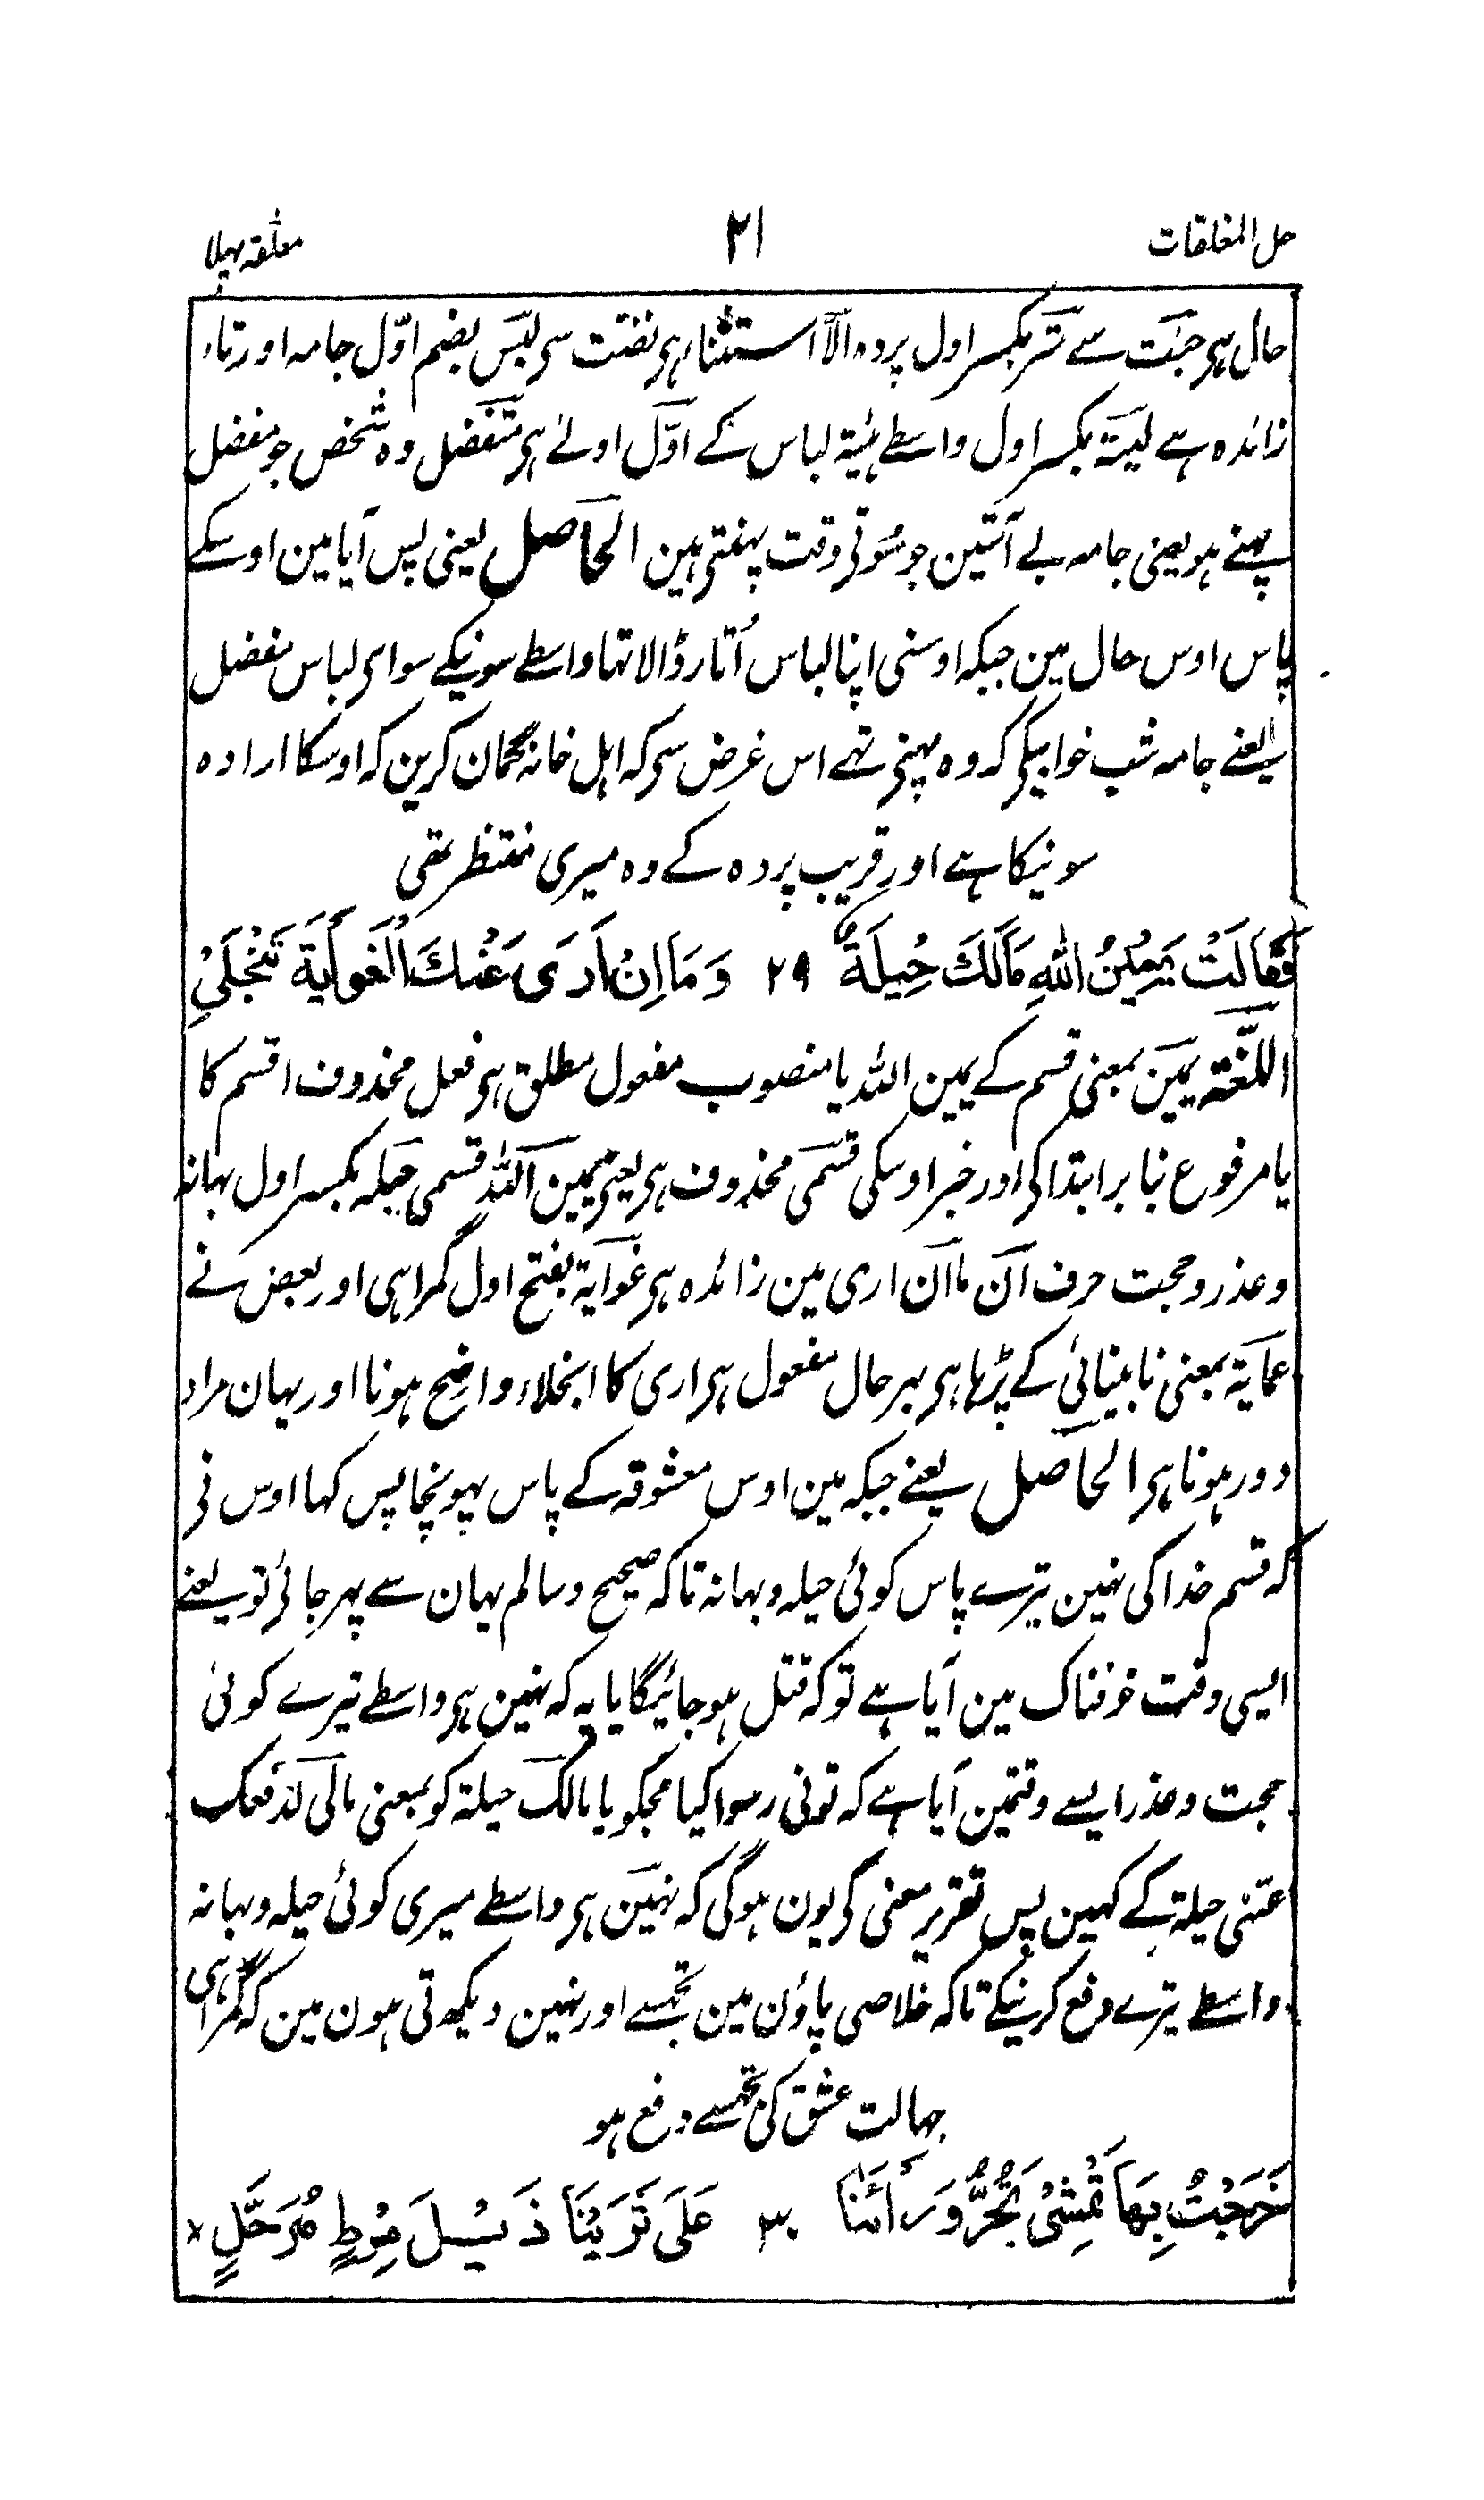 حل المغلقات ۲۱ معلقہ پہلا
حال ہی جئت سے ستر بکسر اول پردہ الّا استثنا ہی نضّت سی لبس بضم اوّل جامہ اور تاء
زائدہ ہے لبسۃ بکسر اول واسطے ہئیۃ لباس کے اوّل اولےٰ ہی متفضل وہ شخص جو مفضل
پہنے ہو یعنی جامہ بے آستین جو سوتی وقت پہنتی ہین الحاصل یعنی پس آیا مین اوسکے
پاس اوس حال مین جبکہ اوسنی اپنا لباس اُتار ڈالا تہا واسطے سونیکے سوای لباس مفضل
یعنے جامہ شب خوابیکی کہ وہ پہنی تہے اس غرض سی کہ اہل خانہ گمان کرین کہ اوسکا ارادہ
سونیکا ہے اور قریب پردہ کے وہ میری منتظر تھی
فَقَالَتْ يَمِيْنُ اللهِ مَالَكَ حِيْلَةٌ ۲۹ وَمَا اِنْ اَرَى عَنْكَ الْغَوَايَةَ تَنْجَلِيْ
اللّغۃ یمین بمعنی قسم کے یمین اللہ یا منصوب مفعول مطلق ہی فعل محذوف اقسم کا
یا مرفوع بنا بر ابتدا کی اور خبر اوسکی قسمی محذوف ہی یعنی یمین اللہ قسمی حیلہ بکسر اول بہانہ
و عذر و حجت حرف ان ما ان اری مین زائدہ ہی غوایۃ بفتح اول گمراہی اور بعض نے
عمایۃ بمعنی نابینائی کے پڑہا ہی بہر حال مفعول ہی اری کا انجلاء واضح ہونا اور یہان مراد
دور ہونا ہی الحاصل یعنے جبکہ مین اوس معشوقہ کے پاس پہونچا پس کہا اوس نی
کہ قسم خدا کی نہین تیرے پاس کوئی حیلہ و بہانہ تا کہ صحیح و سالم یہان سے پہر جائی تو یعنے
ایسی وقت خوفناک مین آیا ہے تو کہ قتل ہو جائیگا یا یہ کہ نہین ہی واسطے تیرے کوئی
حجت و عذر ایسے وقتمین آیا ہے کہ تونی رسوا کیا مجکو یا مالک حیلۃ کو بمعنی مالی لدفعک
عنّی حیلۃ کے کہین پس تقریر معنی کی یون ہو گی کہ نہین ہی واسطے میری کوئی حیلہ و بہانہ
واسطے تیرے دفع کرنیکے تا کہ خلاصی پاؤن مین تجہسے اور نہین دیکہتی ہون مین کہ گمراہی
جہالت عشق کی تجہسے دفع ہو
خَرَجْتُ بِهَا تَمْشِيْ تَجُرُّ وَرَاءَنَا ۳۰ عَلَى اَثَرَيْنَا ذَيْلَ مِرْطٍ مُرَحَّلٍ